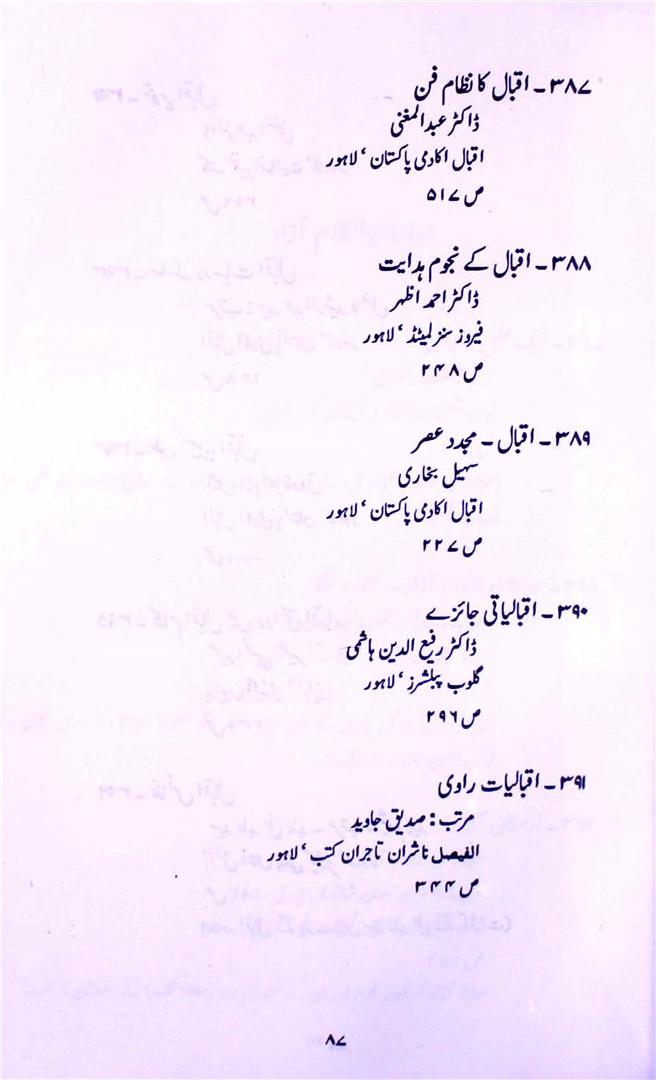 ۳۸۷ ۔ اقبال کا نظام فن
ڈاکٹر عبدالمغنی
اقبال اکادمی پاکستان ‘ لاہور
ص ۵۱۷
۳۸۸ ۔ اقبال کے نجوم ہدایت
ڈاکٹر احمد اظہر
فیروز سنز لمیٹڈ ‘ لاہور
ص ۲۴۸
۳۸۹ ۔ اقبال ۔ مجدد عصر
سہیل بخاری
اقبال اکادمی پاکستان ‘ لاہور
ص ۲۲۷
۳۹۰ ۔ اقبالیاتی جائزے
ڈاکٹر رفیع الدین ہاشمی
گلوب پبلشرز ‘ لاہور
ص ۲۹۶
۳۹۱ ۔ اقبالیات راوی
مرتب : صدیق جاوید
الفیصل ناشران تاجران کتب ‘ لاہور
ص ۳۴۴
۸۷